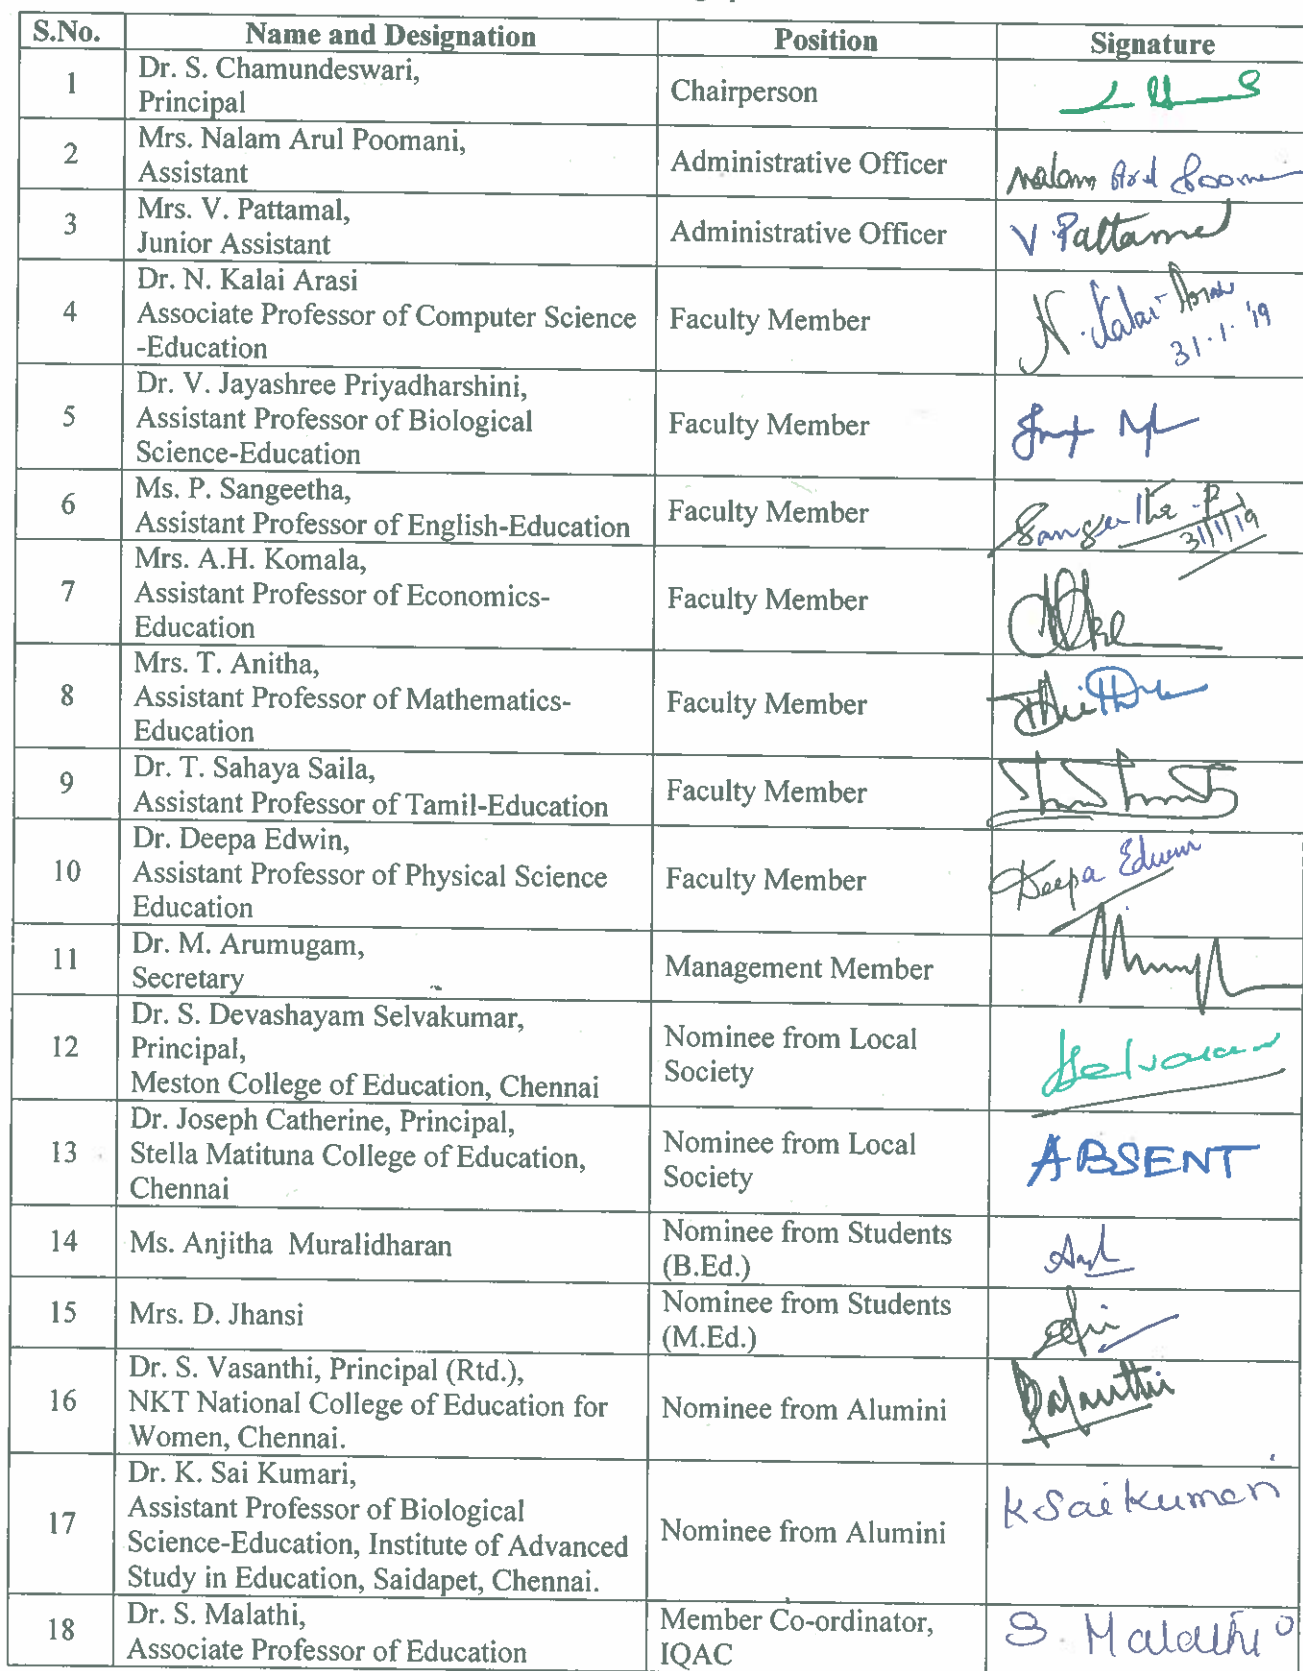 S.No. Name and Designation Position Signature
1 Dr. S. Chamundeswari,
Principal Chairperson
2 Mrs. Nalam Arul Poomani,
Assistant Administrative Officer Nalam Arul Poomani
3 Mrs. V. Pattamal,
Junior Assistant Administrative Officer V. Pattamal
4 Dr. N. Kalai Arasi
Associate Professor of Computer Science
-Education Faculty Member N. Kalai Arasi
31.1.'19
5 Dr. V. Jayashree Priyadharshini,
Assistant Professor of Biological
Science-Education Faculty Member
6 Ms. P. Sangeetha,
Assistant Professor of English-Education Faculty Member Sangeetha.P
31/1/19
7 Mrs. A.H. Komala,
Assistant Professor of Economics-
Education Faculty Member
8 Mrs. T. Anitha,
Assistant Professor of Mathematics-
Education Faculty Member
9 Dr. T. Sahaya Saila,
Assistant Professor of Tamil-Education Faculty Member
10 Dr. Deepa Edwin,
Assistant Professor of Physical Science
Education Faculty Member Deepa Edwin
11 Dr. M. Arumugam,
Secretary Management Member
12 Dr. S. Devashayam Selvakumar,
Principal,
Meston College of Education, Chennai Nominee from Local
Society
13 Dr. Joseph Catherine, Principal,
Stella Matituna College of Education,
Chennai Nominee from Local
Society ABSENT
14 Ms. Anjitha Muralidharan Nominee from Students
(B.Ed.)
15 Mrs. D. Jhansi Nominee from Students
(M.Ed.)
16 Dr. S. Vasanthi, Principal (Rtd.),
NKT National College of Education for
Women, Chennai. Nominee from Alumini
17 Dr. K. Sai Kumari,
Assistant Professor of Biological
Science-Education, Institute of Advanced
Study in Education, Saidapet, Chennai. Nominee from Alumini K Sai Kumari
18 Dr. S. Malathi,
Associate Professor of Education Member Co-ordinator,
IQAC S. Malathi